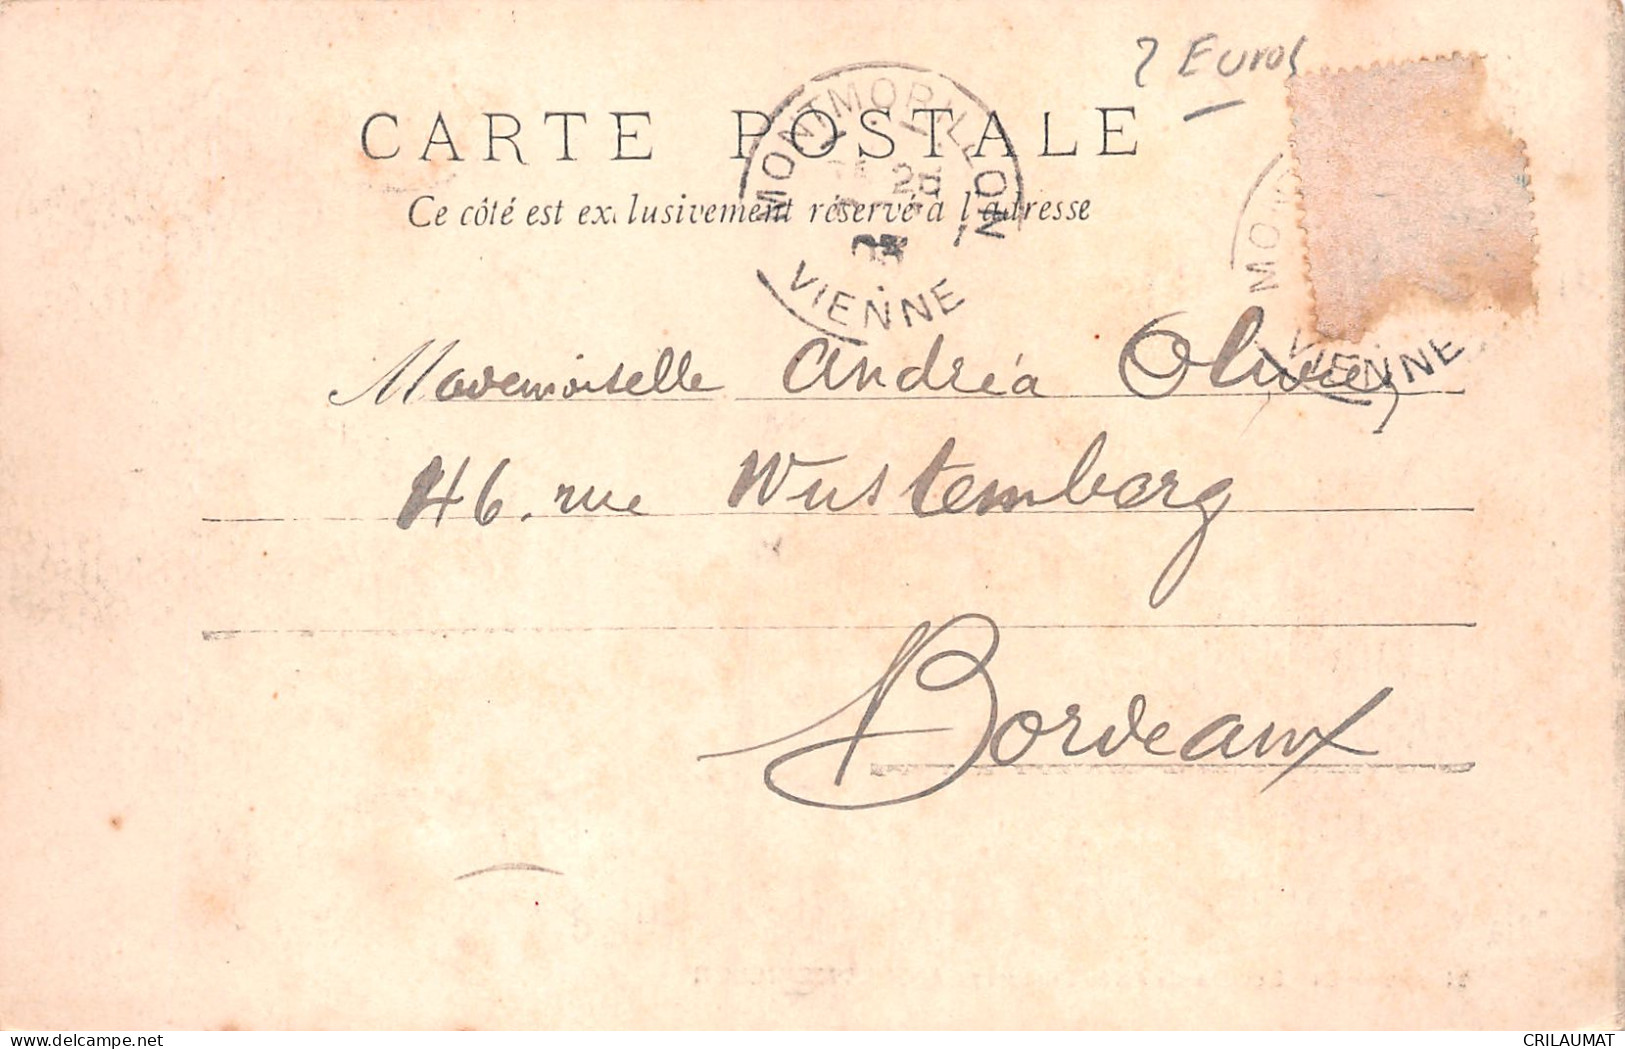 2 Euros
CARTE POSTALE
Ce côté est exclusivement réservé à l'adresse
MONTMORILLON
VIENNE
MO
VIENNE
Mademoiselle Andréa Olivier
46. rue Wustemberg
Bordeaux
delcampe.net
CRILAUMAT